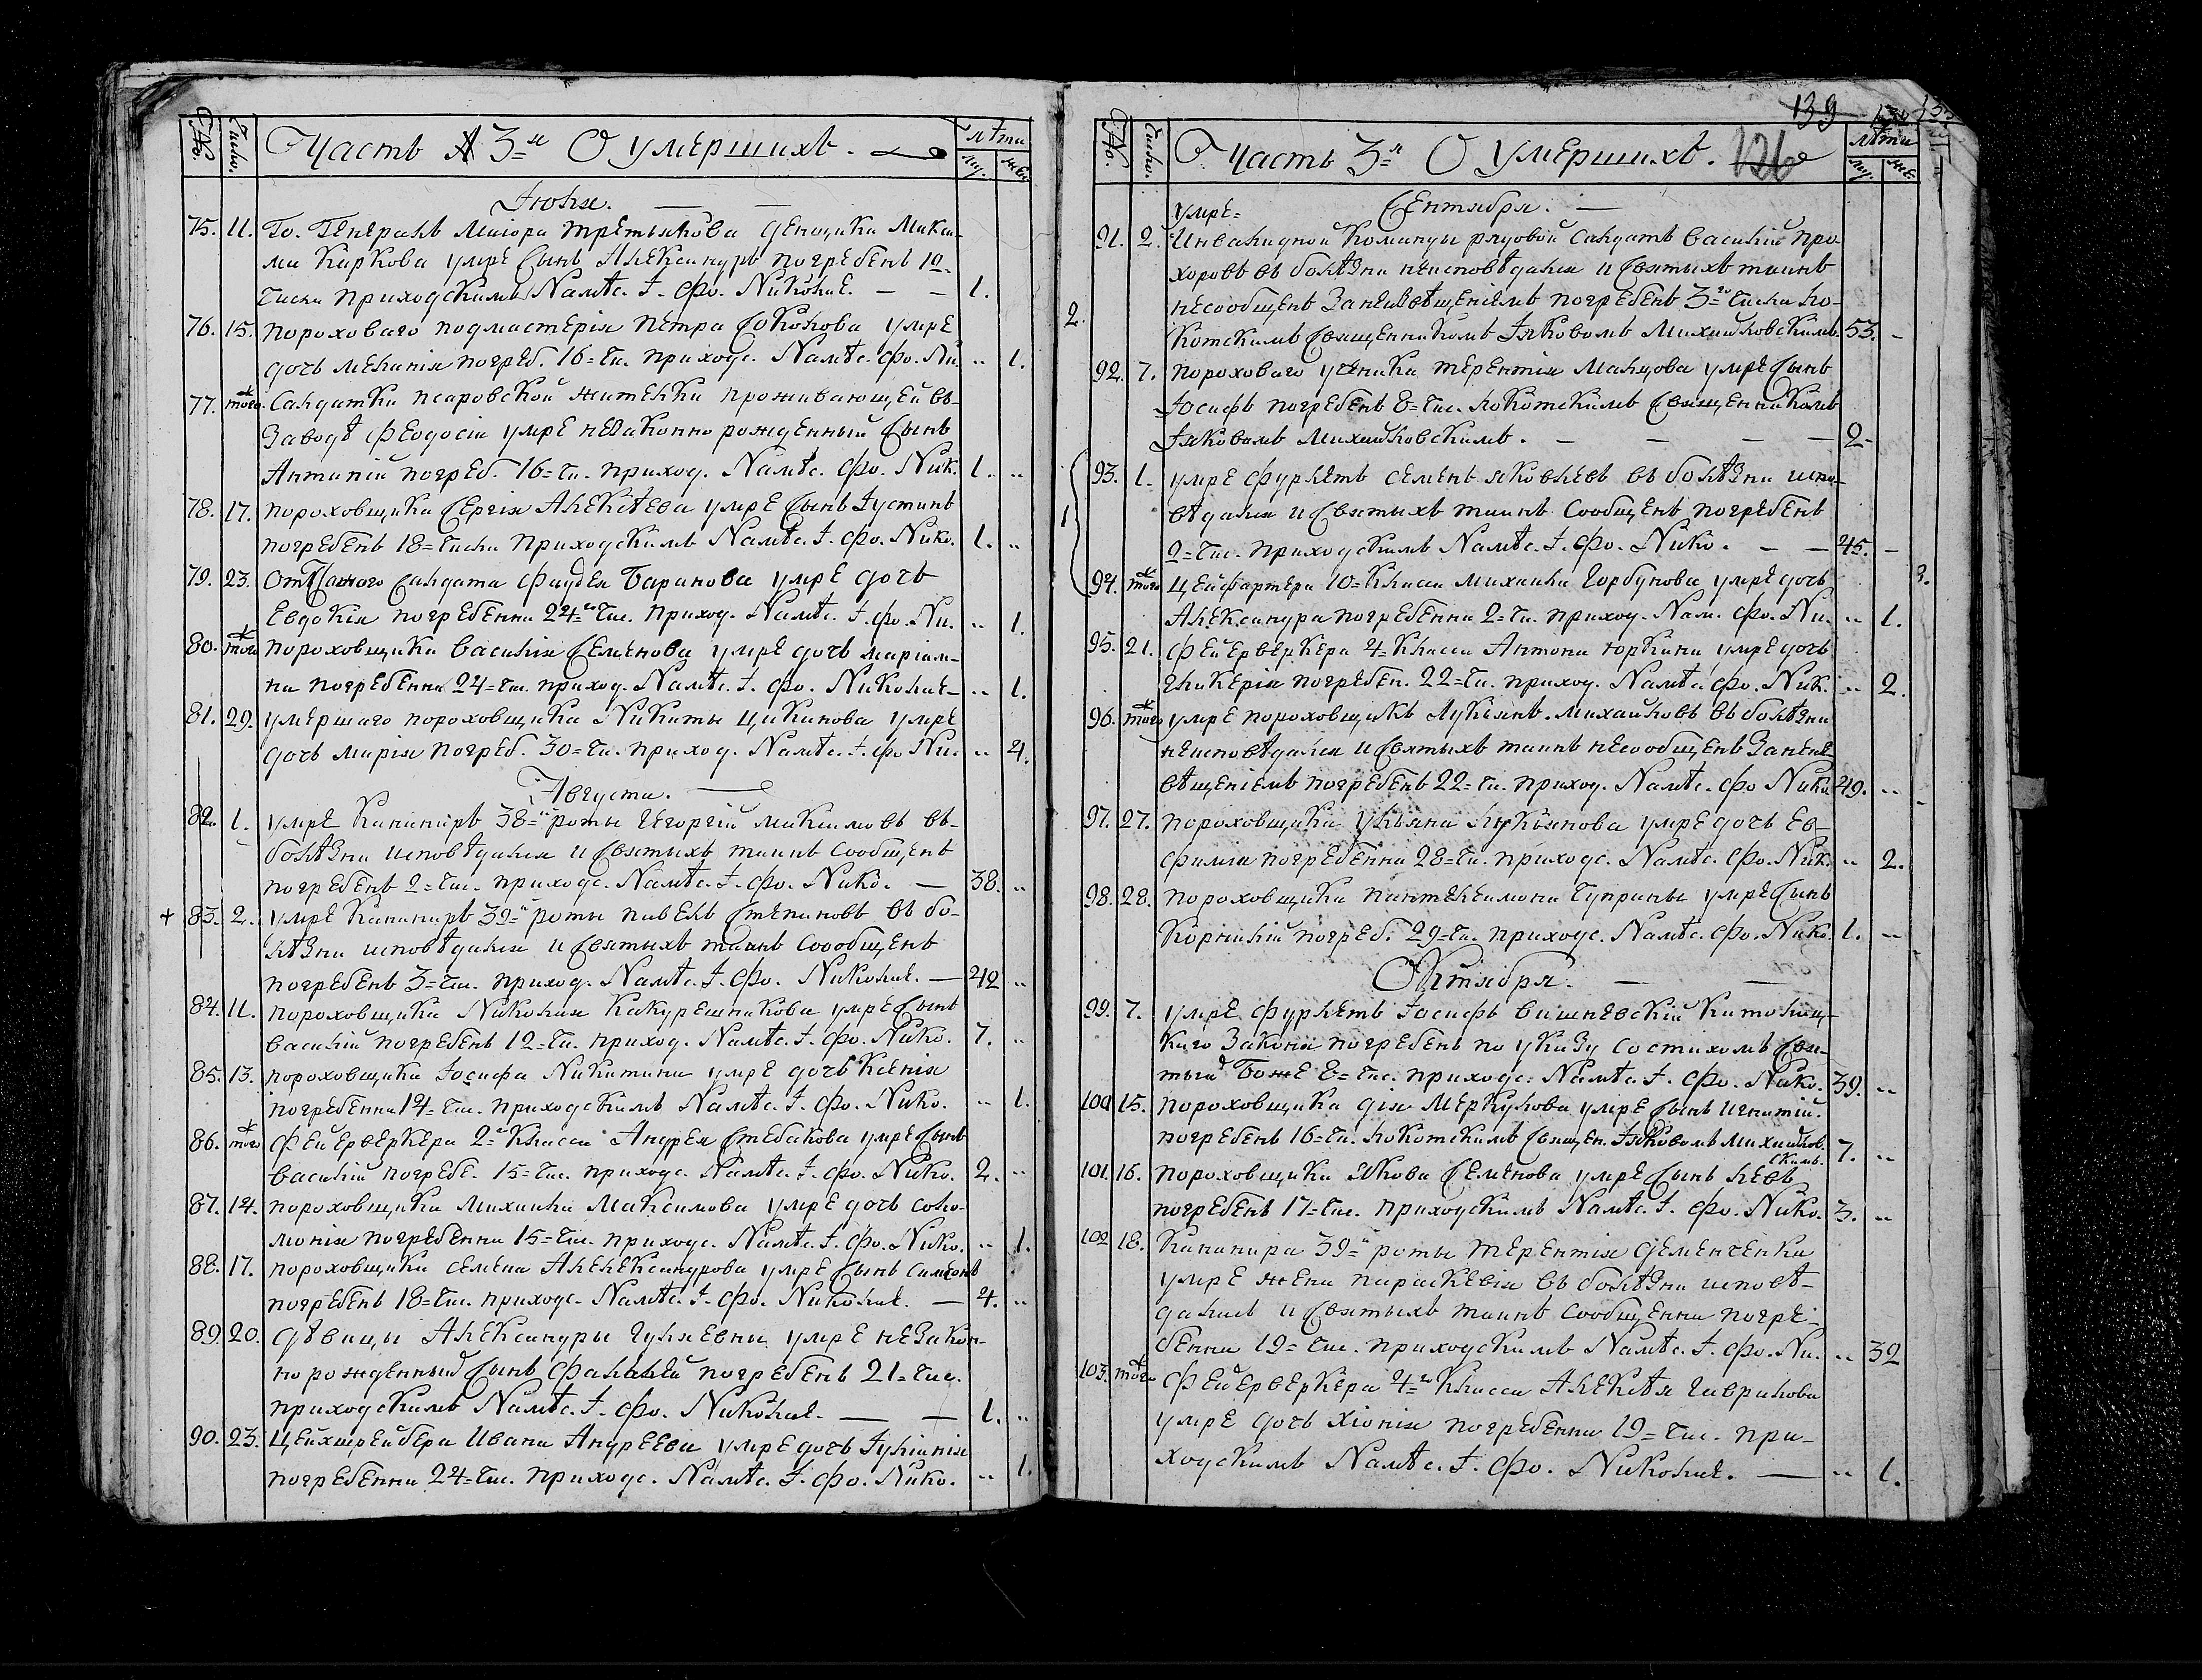 №. Число. Часть 3=я О умершихъ. лѣта
му. жен.
Іюля.
75. 11. Го. Генералъ Маіора Третьякова денщика Макси-
ма Каркова умре сынъ Александръ погребенъ 12=
числа приходскимъ Намѣс. І. Фо. Николае. — — 1.
76. 15. Пороховаго подмастерія Петра Соколова умре
дочь Меланія погреб. 16= чи. приходс. Намѣс. Фо. Ни. .. 1.
77. того Салдатки псаровской жителки проживающей въ
заводѣ Феодосіи умре незаконно рожденный сынъ
Антипій погреб. 16= чи. приход. Намѣс. Фо. Ник. 1. ..
78. 17. пороховщика Сергія Алексѣева умре сынъ Іустинъ
погребенъ 18= числа приходскимъ Намѣс. І. Фо. Нико. 1. ..
79. 23. салдата Фаддея Баранова умре дочь
Евдокія погребенна 24= чис. приход. Намѣс. І. Фо. Ни. .. 1.
80. того пороховщика Василія Семенова умре дочь Маріам-
на погребенна 24= чис. приход. Намѣс. І. Фо. Николае— .. 1.
81. 29. умершаго пороховщика Никиты Цаканова умре
дочь Марія погреб. 30= чи. приход. Намѣс. І. Фо Ни. .. 4.
Августа. —
82. 1. умре Канониръ 38=й роты Георгій Максимовъ въ
болѣзни исповѣдался и Святыхъ таинъ сообщенъ
погребенъ 2= чис. приходс. Намѣс. І. Фо. Нико. — 38. ..
+ 83. 2. умре Канониръ 39=й роты Павелъ Степановъ въ бо-
лѣзни исповѣдался и Святыхъ таинъ соообщенъ
погребенъ 3= чис. приход. Намѣс. І. Фо. Николае. — 42 ..
84. 11. пороховщика Николая Какурешникова умре сынъ
Василій погребенъ 12= чи. приход. Намѣс. І. Фо. Нико. 7. ..
85. 13. пороховщика Іосифа Никитина умре дочь Ксенія
погребенна 14= чис. приходскимъ Намѣс. І. Фо. Нико. .. 1.
86. того Фейерверкера 2= класса Андрея Стебакова умре сынъ
Василій погребе. 15= чис. приходс. Намѣс. І. Фо. Нико. 2. ..
87. 14. пороховщика Михаила Максимова умре дочь Соло-
монія погребенна 15= чис. приходс. Намѣс. І. Фо. Нико. .. 1.
88. 17. пороховщика Семена Алелександрова умре сынъ Симеонъ
погребенъ 18= чис. приходс. Намѣс. І. Фо. Николае. — 4. ..
89. 20. дѣвицы Александры Гуляевны умре незакон-
норожденный сынъ Фалалей погребенъ 21= чис.
приходскимъ Намѣс. І. Фо. Николае. — — 1. ..
90. 23. Цейхшрейбера Ивана Андреева умре дочь Іуліанія
погребенна 24= чис. приходс. Намѣс. І. Фо. Нико. .. 1.
139
№. Число. Часть 3=я О умершихъ. 126 лѣта
му. же.
Сентября. —
умре=
91. 2. Инвалидной команды рядовой салдатъ Василій Про-
хоровъ въ болѣзни неисповѣдался и Святыхъ таинъ
несообщенъ погребенъ 3= числа ко-
2. котскимъ Священникомъ Іяковомъ Михайловскимъ. 53. —
92. 7. пороховаго ученика Терентія Манцова умре сынъ
Іосифъ погребенъ 8= чис. кокотскимъ Священникомъ
Іяковомъ Михайловскимъ. — — — — 2-
93. 1. умре Фурлетъ Семенъ Яковлевъ въ болѣзни испо-
1 вѣдался и Святыхъ таинъ сообщенъ погребенъ
2= чис. приходскимъ Намѣс. І. Фо. Нико. — — 45. —
94. того Цейфартера 10= класса Михаила Горбунова умре дочь
Александра погребенна 2= чи. приход. Нам. Фо. Ни. .. 1.
95. 21. Фейерверкера 4= класса Антона Юркина умре дочь
Гликерія погребен. 22= чи. приход. Намѣс. Фо. Ник. .. 2.
96. того умре пороховщикъ Лукьянъ Михайловъ въ болѣзни
неисповѣдался и Святыхъ таинъ несообщенъ
погребенъ 22= чи. приход. Намѣс. Фо Нико. 49. ..
97. 27. пороховщика Ульяна Лукьянова умре дочь Ев-
фимія погребенна 28= чи. приходс. Намѣс. Фо. Ник. .. 2.
98. 28. пороховщика Пантелеимона Чуприны умре сынъ
Корнилій погреб. 29= чи. приходс. Намѣс. Фо. Нико. 1. ..
Октября. — —
99. 7. умре Фурлетъ Іосифъ Вишневскій Католиц-
каго закона погребенъ по указу со стихомъ Свя-
тый Боже 8= чис. приходс. Намѣс. І. Фо. Нико. 39. ..
100 15. пороховщика Дія Меркулова умре сынъ Игнатій.
погребенъ 16= чи. кокотскимъ Священ. Іяковомъ Михайлов. 7. ..
скимъ.
101. 16. пороховщика Якова Семенова умре сынъ Левъ
погребенъ 17= чис. приходскимъ Намѣс. І. Фо. Нико. 3. ..
102 18. Канонира 39=й роты Терентія Деменченка
умре жена Параскевія въ болѣзни исповѣ-
далась и Святыхъ таинъ сообщенна погре-
бенна 19= чис. приходскимъ Намѣс. І. Фо. Ни. .. 32
103. того Фейерверкера 4=го класса Алексѣя Гаврилова
умре дочь Хіонія погребенна 19= чис. при-
ходскимъ Намѣс. І. Фо. Николае. — .. 1.